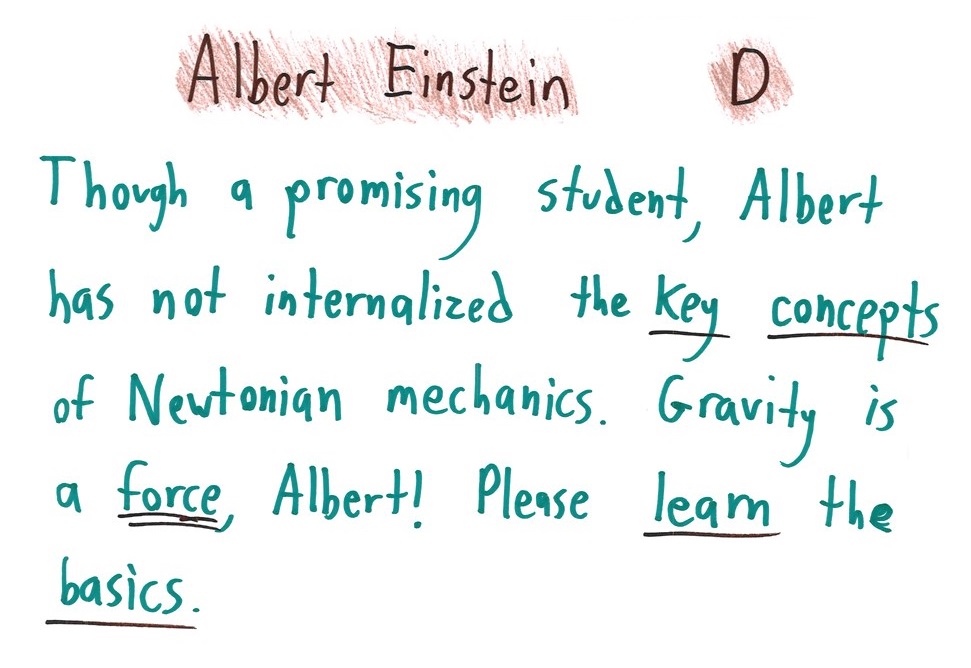 Albert Einstein D
Though a promising student, Albert
has not internalized the key concepts
of Newtonian mechanics. Gravity is
a force, Albert! Please learn the
basics.